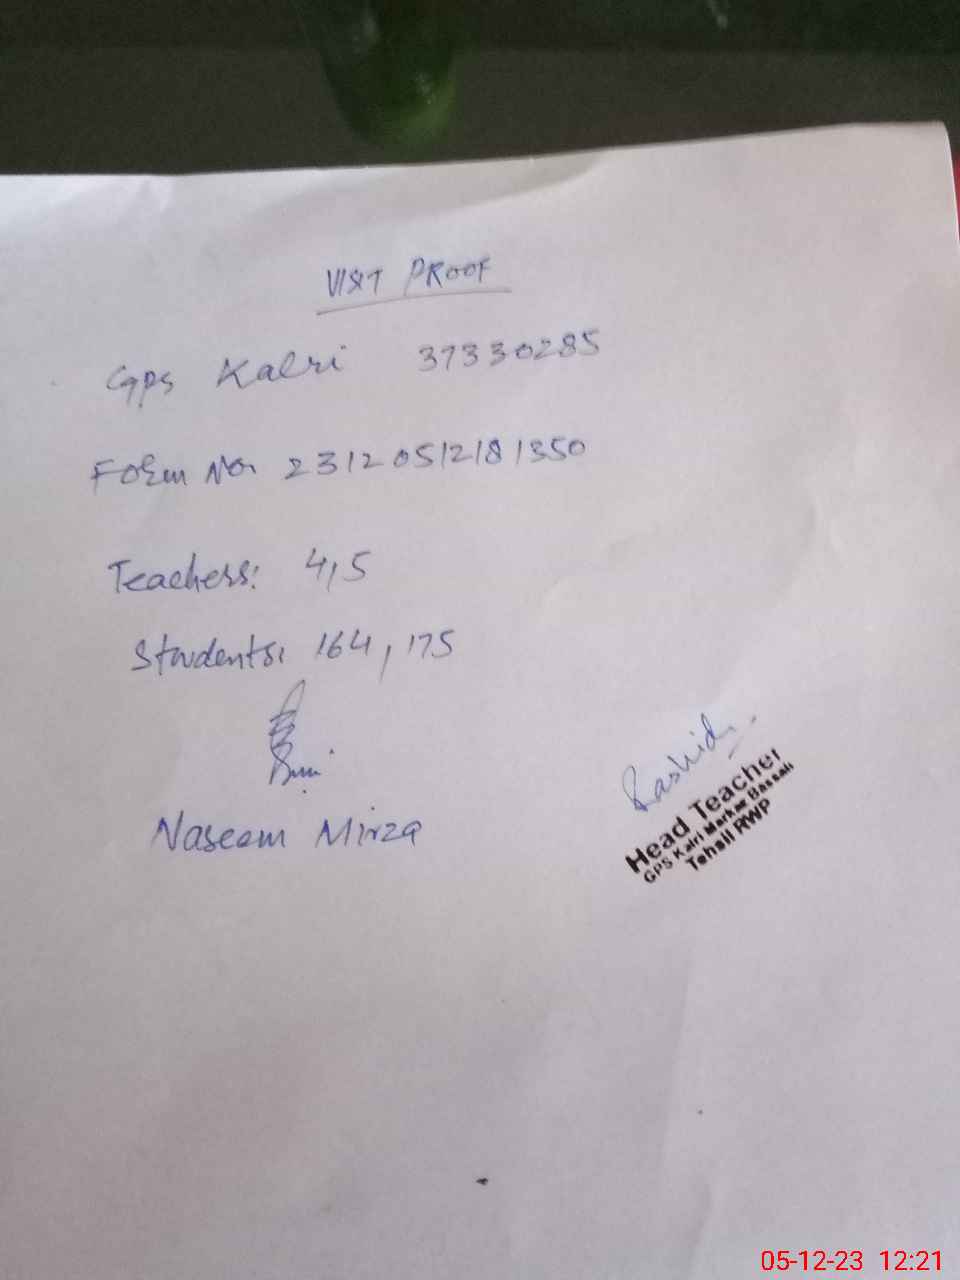 VISIT PROOF
GPS Kalri 37330285
Form No. 23120512181350
Teachers: 4,5
Students: 164, 175
Naseem Mirza
Rashid
Head Teacher
GPS Kalri Markaz Bassali
Tehsil RWP
05-12-23 12:21